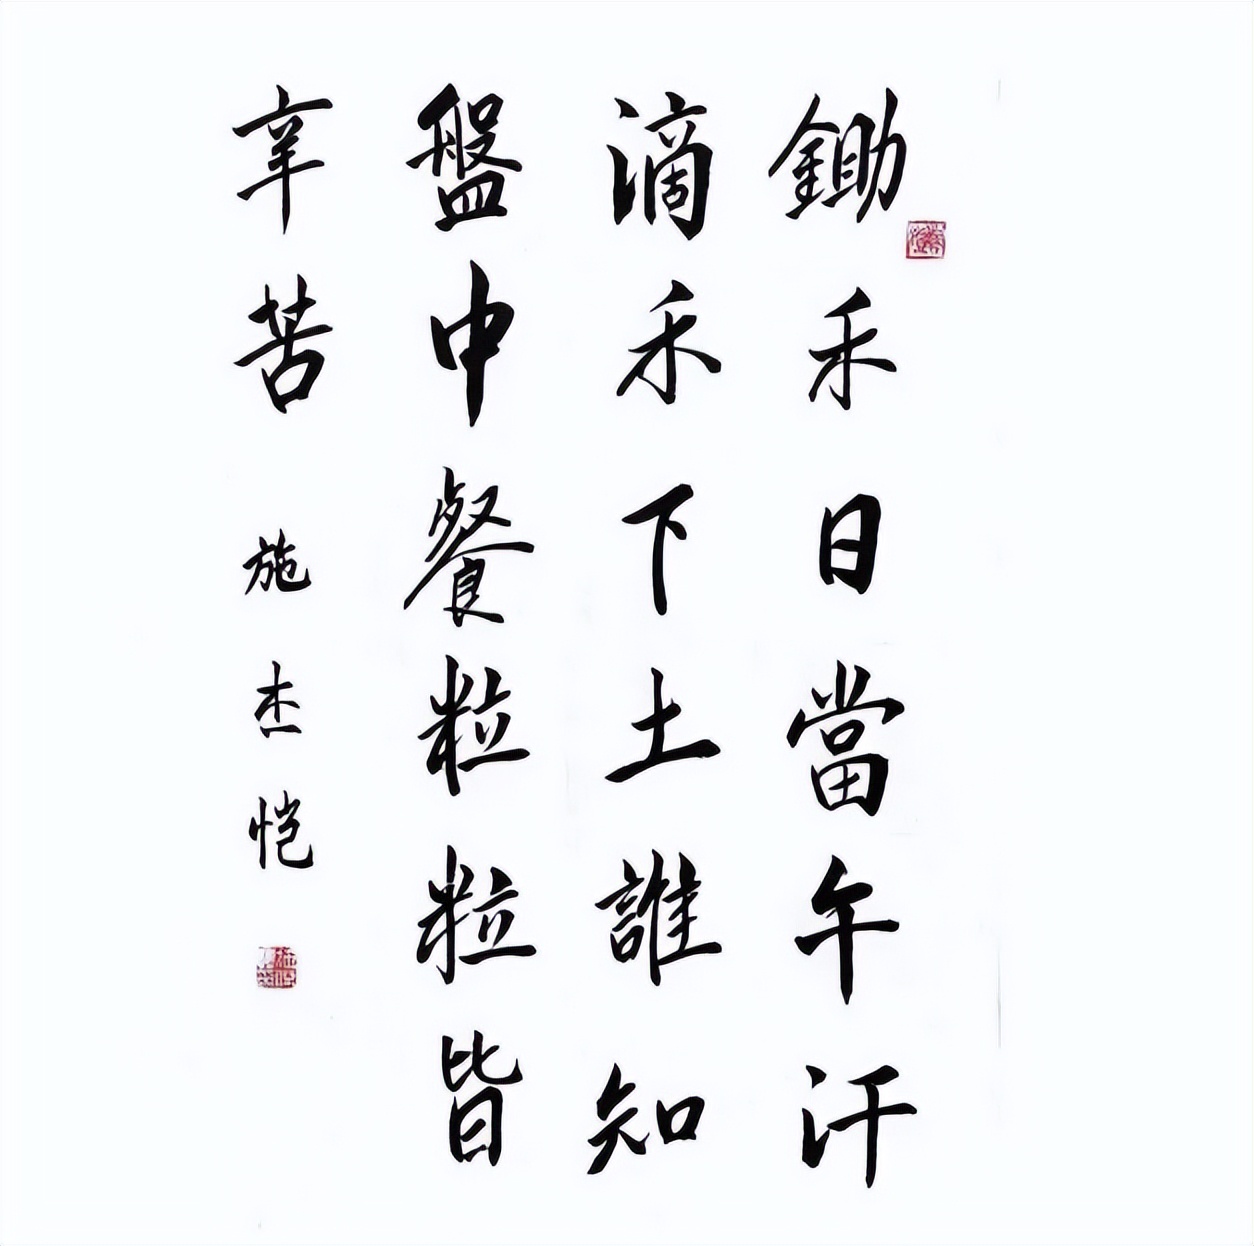 鋤禾日當午汗
滴禾下土誰知
盤中餐粒粒皆
辛苦
施杰恺